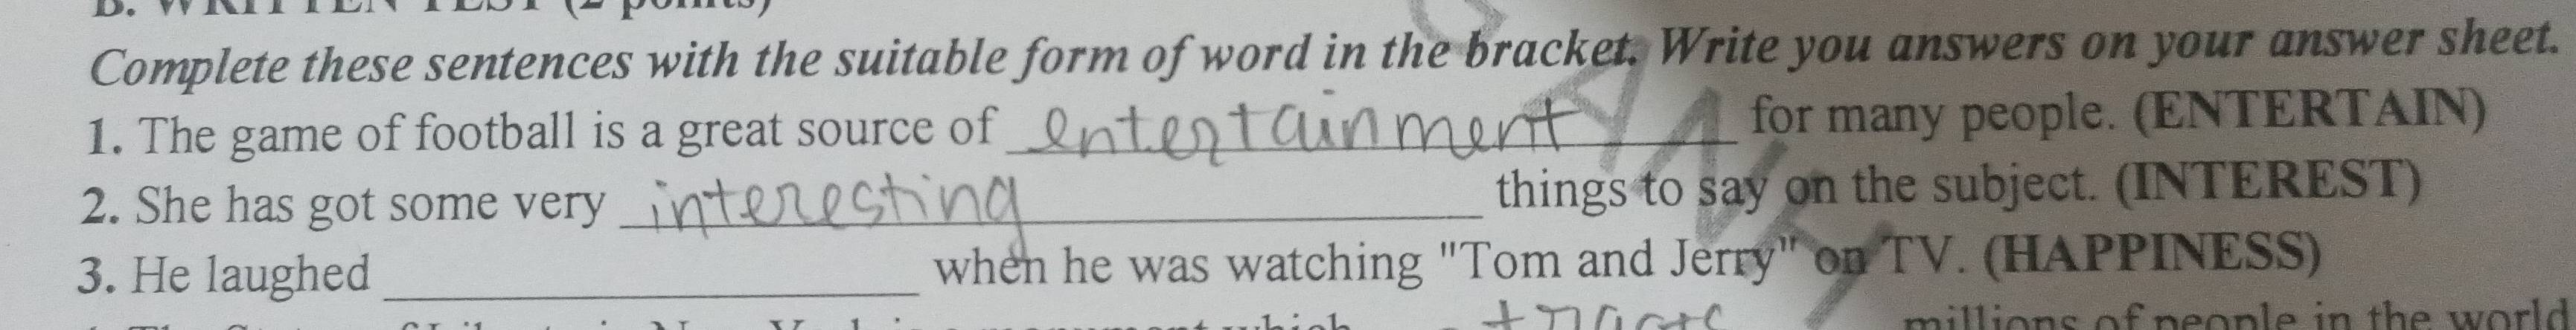 B. WRITTEN TEST (2 points)
Complete these sentences with the suitable form of word in the bracket. Write you answers on your answer sheet.
1. The game of football is a great source of entertainment for many people. (ENTERTAIN)
2. She has got some very interesting things to say on the subject. (INTEREST)
3. He laughed ____________ when he was watching "Tom and Jerry" on TV. (HAPPINESS)
millions of people in the world